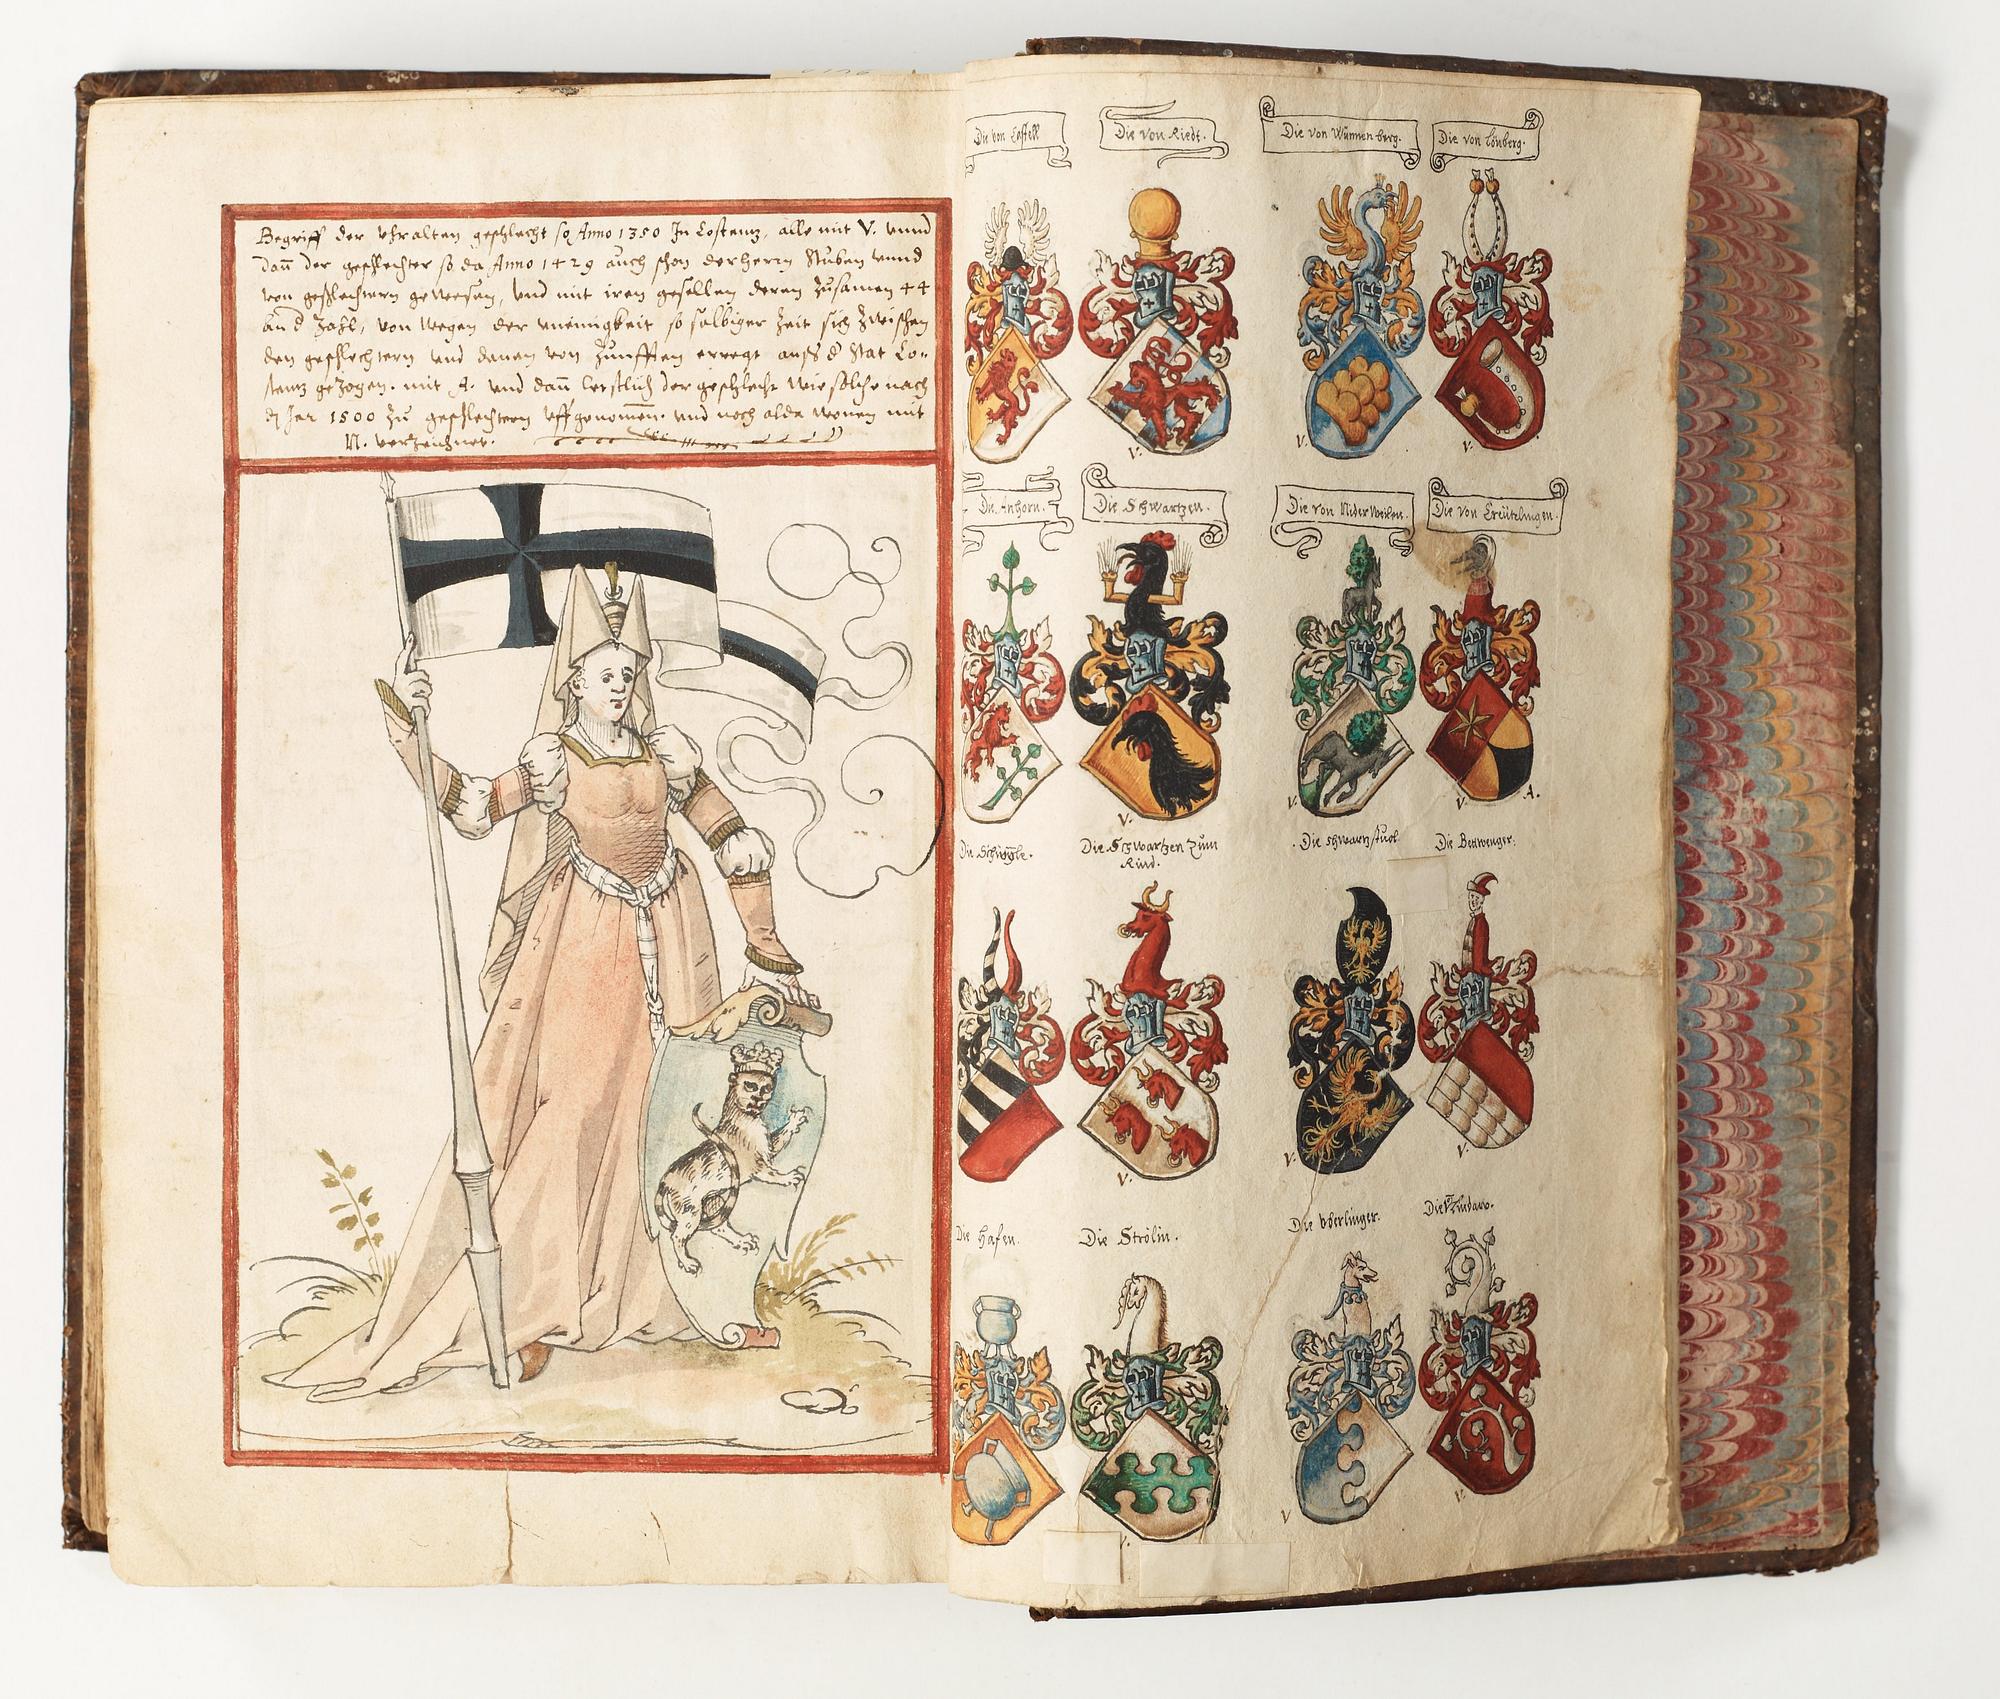 Begriff der vhralten geschlecht so Anno 1350 In Costentz, alle mit V. vnnd
dan̄ der geschlechter so da Anno 1429 auch schon der herrn Stuben vnnd
von geschlechtern gewesen, vnd mit iren gesellen deren zusamen 44
an d̓ Zahl, von wegen der vneinigkeit so selbiger Zeit sich zwischen
den geschlechtern vnd denen von Zunfften erregt auß d̓ Stat Co=
stentz gezogen. mit A. vnd dan̄ letstlich der geschlecht wie solche nach
dem Jar 1500 zu geschlechtern vffgenomen̄. vnd noch alda wonen mit
N. verzeichnet.
Die von Castell
Die von Riedt.
Die von Wūnnenberg.
Die von Lönberg.
V.
V.
V.
Die Anhorn.
Die Schwartzen.
Die von Nider Weilen.
Die von Creützlingen.
V.
V.
V.
A.
Die Schwartzen zum
Rind.
Die Bettwenger.
V.
V.
V.
Die Hafen.
Die Strölin.
Die Vberlinger.
V.
V